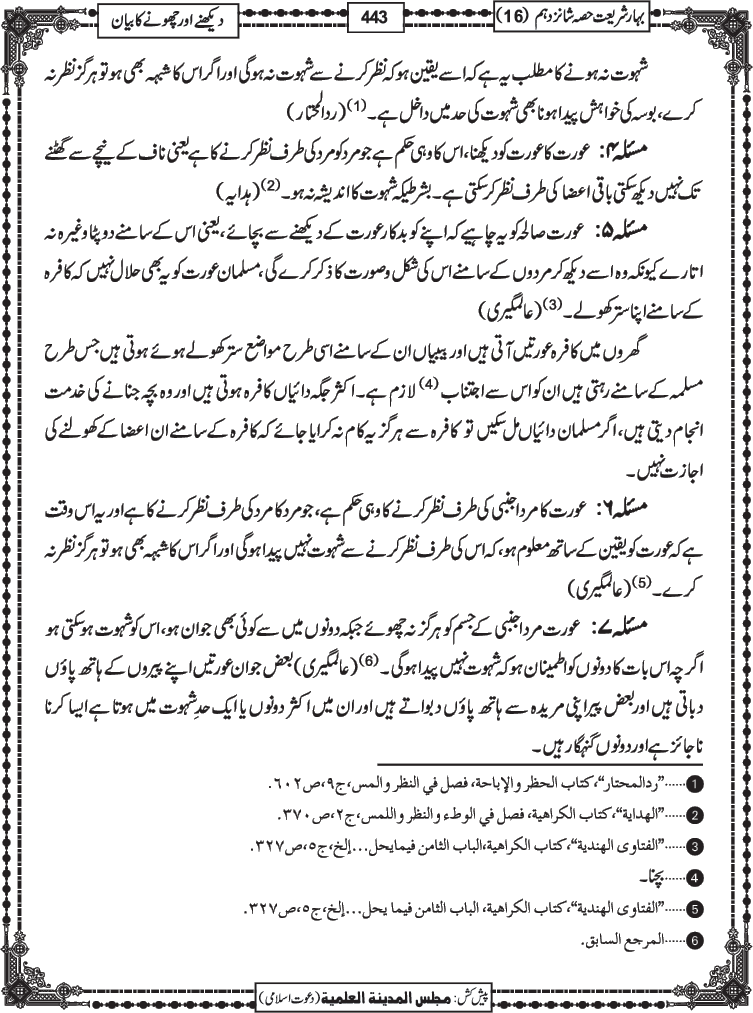 بہارِ شریعت حصہ شانزدہم (16)
443
دیکھنے اور چھونے کا بیان
شہوت نہ ہونے کا مطلب یہ ہے کہ اسے یقین ہو کہ نظر کرنے سے شہوت نہ ہوگی اور اگر اس کا شبہہ بھی ہو تو ہرگز نظر نہ
کرے، بوسہ کی خواہش پیدا ہونا بھی شہوت کی حد میں داخل ہے۔(1) (ردالمحتار)
مسئلہ ۴: عورت کا عورت کو دیکھنا، اس کا وہی حکم ہے جو مرد کو مرد کی طرف نظر کرنے کا ہے یعنی ناف کے نیچے سے گھٹنے
تک نہیں دیکھ سکتی باقی اعضا کی طرف نظر کر سکتی ہے۔ بشرطیکہ شہوت کا اندیشہ نہ ہو۔(2) (ہدایہ)
مسئلہ ۵: عورت صالحہ کو یہ چاہیے کہ اپنے کو بدکار عورت کے دیکھنے سے بچائے، یعنی اس کے سامنے دوپٹا وغیرہ نہ
اتارے کیونکہ وہ اسے دیکھ کر مردوں کے سامنے اس کی شکل و صورت کا ذکر کرے گی، مسلمان عورت کو یہ بھی حلال نہیں کہ کافرہ
کے سامنے اپنا ستر کھولے۔(3) (عالمگیری)
گھروں میں کافرہ عورتیں آتی ہیں اور بیبیاں ان کے سامنے اسی طرح مواضع ستر کھولے ہوئے ہوتی ہیں جس طرح
مسلمہ کے سامنے رہتی ہیں ان کو اس سے اجتناب(4) لازم ہے۔ اکثر جگہ دائیاں کافرہ ہوتی ہیں اور وہ بچہ جنانے کی خدمت
انجام دیتی ہیں، اگر مسلمان دائیاں مل سکیں تو کافرہ سے ہرگز یہ کام نہ کرایا جائے کہ کافرہ کے سامنے ان اعضا کے کھولنے کی
اجازت نہیں۔
مسئلہ ۶: عورت کا مرد اجنبی کی طرف نظر کرنے کا وہی حکم ہے، جو مرد کا مرد کی طرف نظر کرنے کا ہے اور یہ اس وقت
ہے کہ عورت کو یقین کے ساتھ معلوم ہو، کہ اس کی طرف نظر کرنے سے شہوت نہیں پیدا ہوگی اور اگر اس کا شبہہ بھی ہو تو ہرگز نظر نہ
کرے۔(5) (عالمگیری)
مسئلہ ۷: عورت مرد اجنبی کے جسم کو ہرگز نہ چھوئے جبکہ دونوں میں سے کوئی بھی جوان ہو، اس کو شہوت ہو سکتی ہو
اگرچہ اس بات کا دونوں کو اطمینان ہو کہ شہوت نہیں پیدا ہوگی۔(6) (عالمگیری) بعض جوان عورتیں اپنے پیروں کے ہاتھ پاؤں
دباتی ہیں اور بعض پیر اپنی مریدہ سے ہاتھ پاؤں دبواتے ہیں اور ان میں اکثر دونوں یا ایک حدِ شہوت میں ہوتا ہے ایسا کرنا
ناجائز ہے اور دونوں گنہگار ہیں۔
1......"ردالمحتار"، کتاب الحظر والإباحة، فصل في النظر والمس، ج٩، ص٦٠٢.
2......"الهداية"، كتاب الكراهية، فصل في الوطء والنظر واللمس، ج٢، ص٣٧٠.
3......"الفتاوى الهندية"، كتاب الكراهية، الباب الثامن فيما يحل...إلخ، ج٥، ص٣٢٧.
4......بچنا۔
5......"الفتاوى الهندية"، كتاب الكراهية، الباب الثامن فيما يحل...إلخ، ج٥، ص٣٢٧.
6......المرجع السابق.
پیش کش: مجلس المدينة العلمية (دعوت اسلامی)